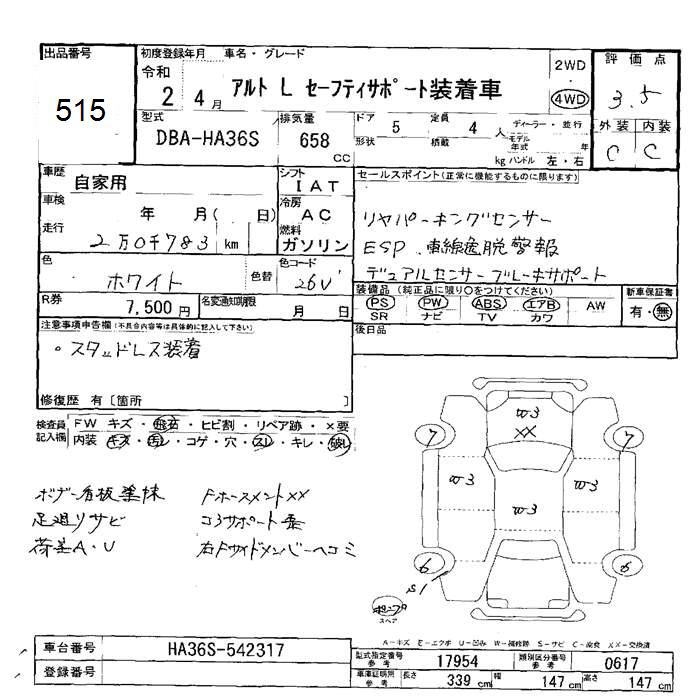 出品番号
515
初度登録年月 車名・グレード
令和 2 4月
アルト L セーフティサポート装着車
2WD
4WD
評価点
3.5
外装 内装
C C
型式
DBA-HA36S
排気量
658 CC
ドア 5 定員 4 人
形状 積載 kg
ディーラー・並行
モデル年式 年
ハンドル 左・右
車歴 自家用
シフト IAT
車検 年 月( 日)
冷房 AC
走行 2万0千783 km
燃料 ガソリン
色 ホワイト 色替
色コード 26U
R券 7,500円
名変通知期限 月 日
セールスポイント(正常に機能するものに限ります)
リヤパーキングセンサー
ESP、車線逸脱警報
デュアルセンサーブレーキサポート
装備品(純正品に限り○をつけてください)
PS PW ABS エアB AW
SR ナビ TV カワ
新車保証書
有・無
後日品
注意事項申告欄(不具合内容等は具体的に記入して下さい)
・スタッドレス装着
修復歴 有〔箇所 〕
検査員記入欄
FW キズ・飛石・ヒビ割・リペア跡・×要
内装 キズ・汚レ・コゲ・穴・スレ・キレ・破レ
ボデー看板塗抹
足廻りサビ
荷差A・U
Fホースメント××
コアサポート
右Fサイドメンバーヘコミ
W3
XX
7 7
W3 W3
W3
6 6
S1
スペア
A-キズ E-エクボ U-凹み W-補修跡 S-サビ C-腐食 XX-交換済
車台番号 HA36S-542317
登録番号
型式指定番号 参考 17954
類別区分番号 参考 0617
車庫証明用 参考 長さ 339 cm 幅 147 cm 高さ 147 cm